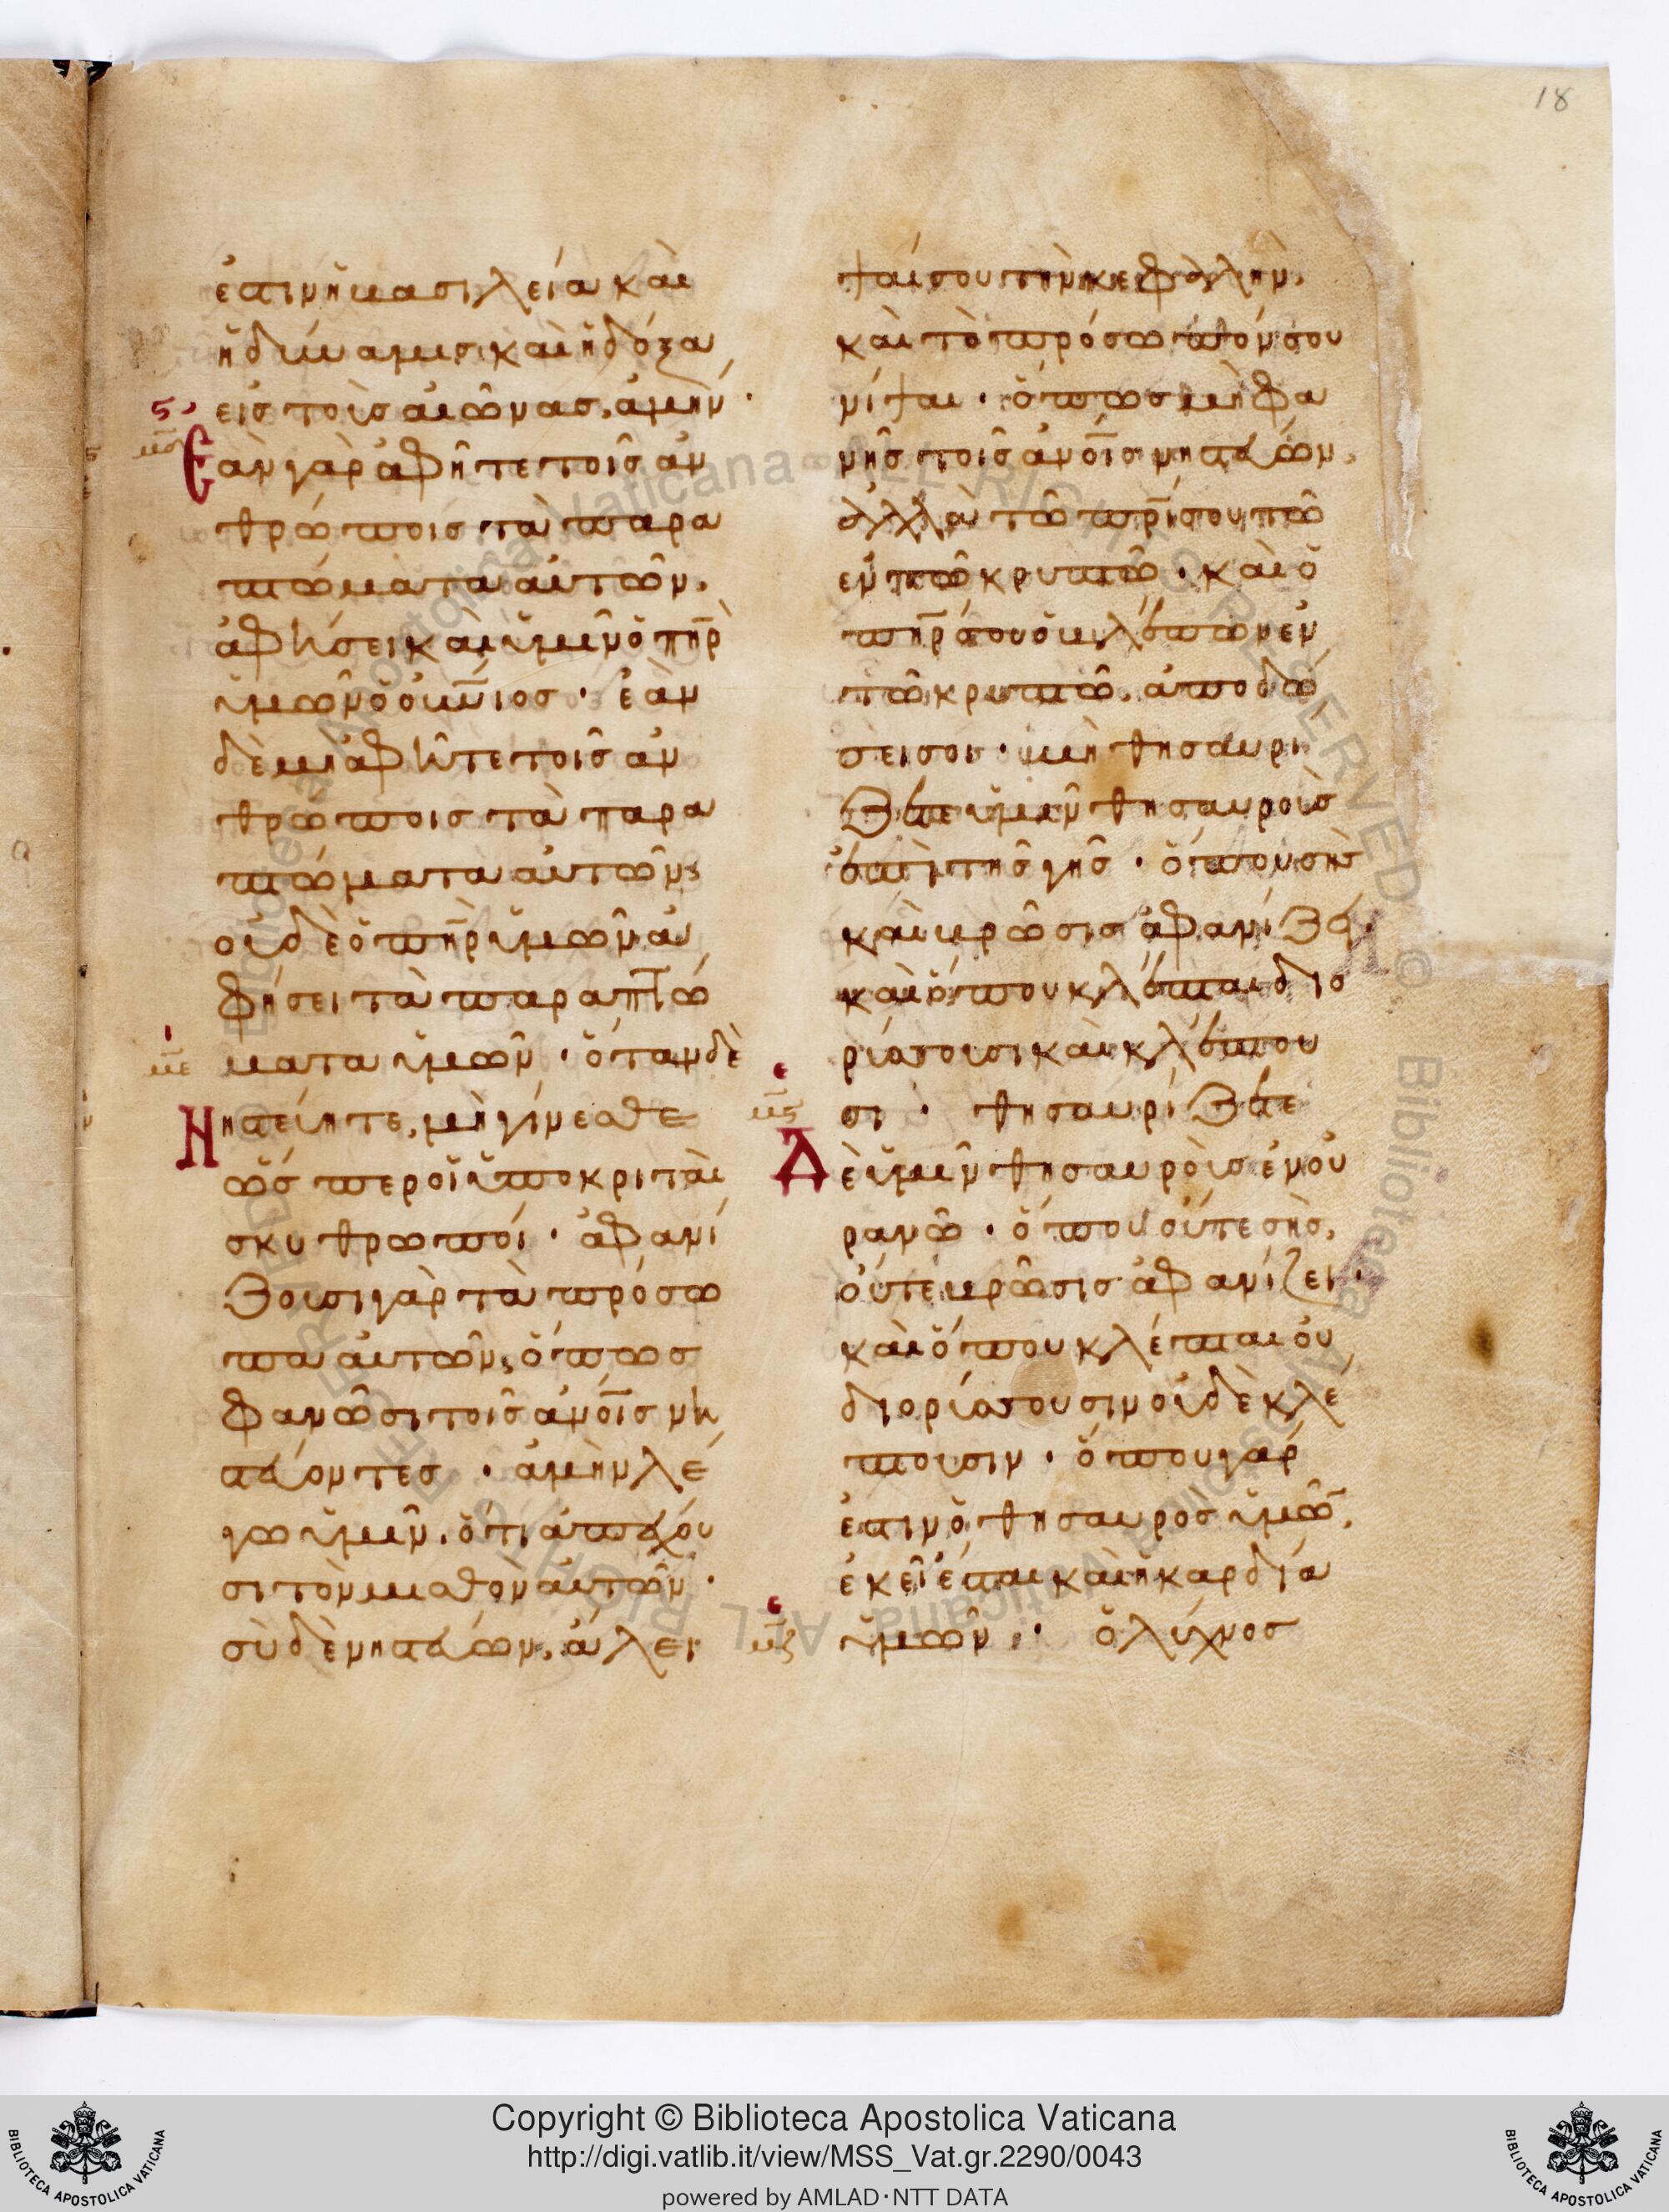 18
ἐστιν ἡ βασιλεία καὶ
ἡ δύναμισ καὶ ἡ δόξα
εἰσ τοὺσ αἰῶνασ, ἀμήν·
ϛ
μδ
Ἐὰν γὰρ ἀφῆτε τοῖσ ἀν
θρώποισ τὰ παρα
πτώματα αὐτῶν,
ἀφήσει καὶ ὑμῖν ὁ πηρ
ὑμῶν ὁ οὐνιοσ· ἐὰν
δὲ μὴ ἀφῆτε τοῖσ ἀν
θρώποισ τὰ παρα
πτώματα αὐτῶν,
οὐδὲ ὁ πηρ ὑμῶν ἀ
φήσει τὰ παραπτώ
με
ματα ὑμῶν· ὅταν δὲ
Νηστεύητε, μὴ γίνεσθε
ὥσπερ οἱ ὑποκριταὶ
σκυθρωποί· ἀφανί
ζουσι γὰρ τὰ πρόσω
πα αὐτῶν, ὅπωσ
φανῶσι τοῖσ ἀνοισ νη
στεύοντεσ· ἀμὴν λέ
γω ὑμῖν, ὅτι ἀπέχου
σι τὸν μισθὸν αὐτῶν·
σὺ δὲ νηστεύων, ἄλει
ψαί σου τὴν κεφαλήν,
καὶ τὸ πρόσωπόν σου
νίψαι· ὅπωσ μὴ φα
νῆσ τοῖσ ἀνοισ νηστεύων,
ἀλλὰ τῶ πρί σου τῶ
ἐν τῶ κρυπτῶ· καὶ ὁ
πηρ σου ὁ βλέπων ἐν
τῶ κρυπτῶ, ἀποδώ
σει σοι· μὴ θησαυρί
ζετε ὑμῖν θησαυροὺσ
ἐπὶ τῆσ γῆσ· ὅπου σὴσ
καὶ βρῶσισ ἀφανίζει,
καὶ ὅπου κλέπται διο
ρύσσουσι καὶ κλέπτου
μϛ
σι· θησαυρίζετε
Δὲ ὑμῖν θησαυροὺσ ἐν οὐ
ρανῶ· ὅπου οὔτε σὴσ,
οὔτε βρῶσισ ἀφανίζει·
καὶ ὅπου κλέπται οὐ
διορύσσουσιν οὐδὲ κλέ
πτουσιν· ὅπου γάρ
ἐστιν ὁ θησαυρὸσ ὑμῶ,
ἐκεῖ ἔσται καὶ ἡ καρδία
μζ
ὑμῶν· ὁ λύχνοσ
BIBLIOTECA APOSTOLICA VATICANA
Copyright © Biblioteca Apostolica Vaticana
http://digi.vatlib.it/view/MSS_Vat.gr.2290/0043
powered by AMLAD·NTT DATA
BIBLIOTECA APOSTOLICA VATICANA